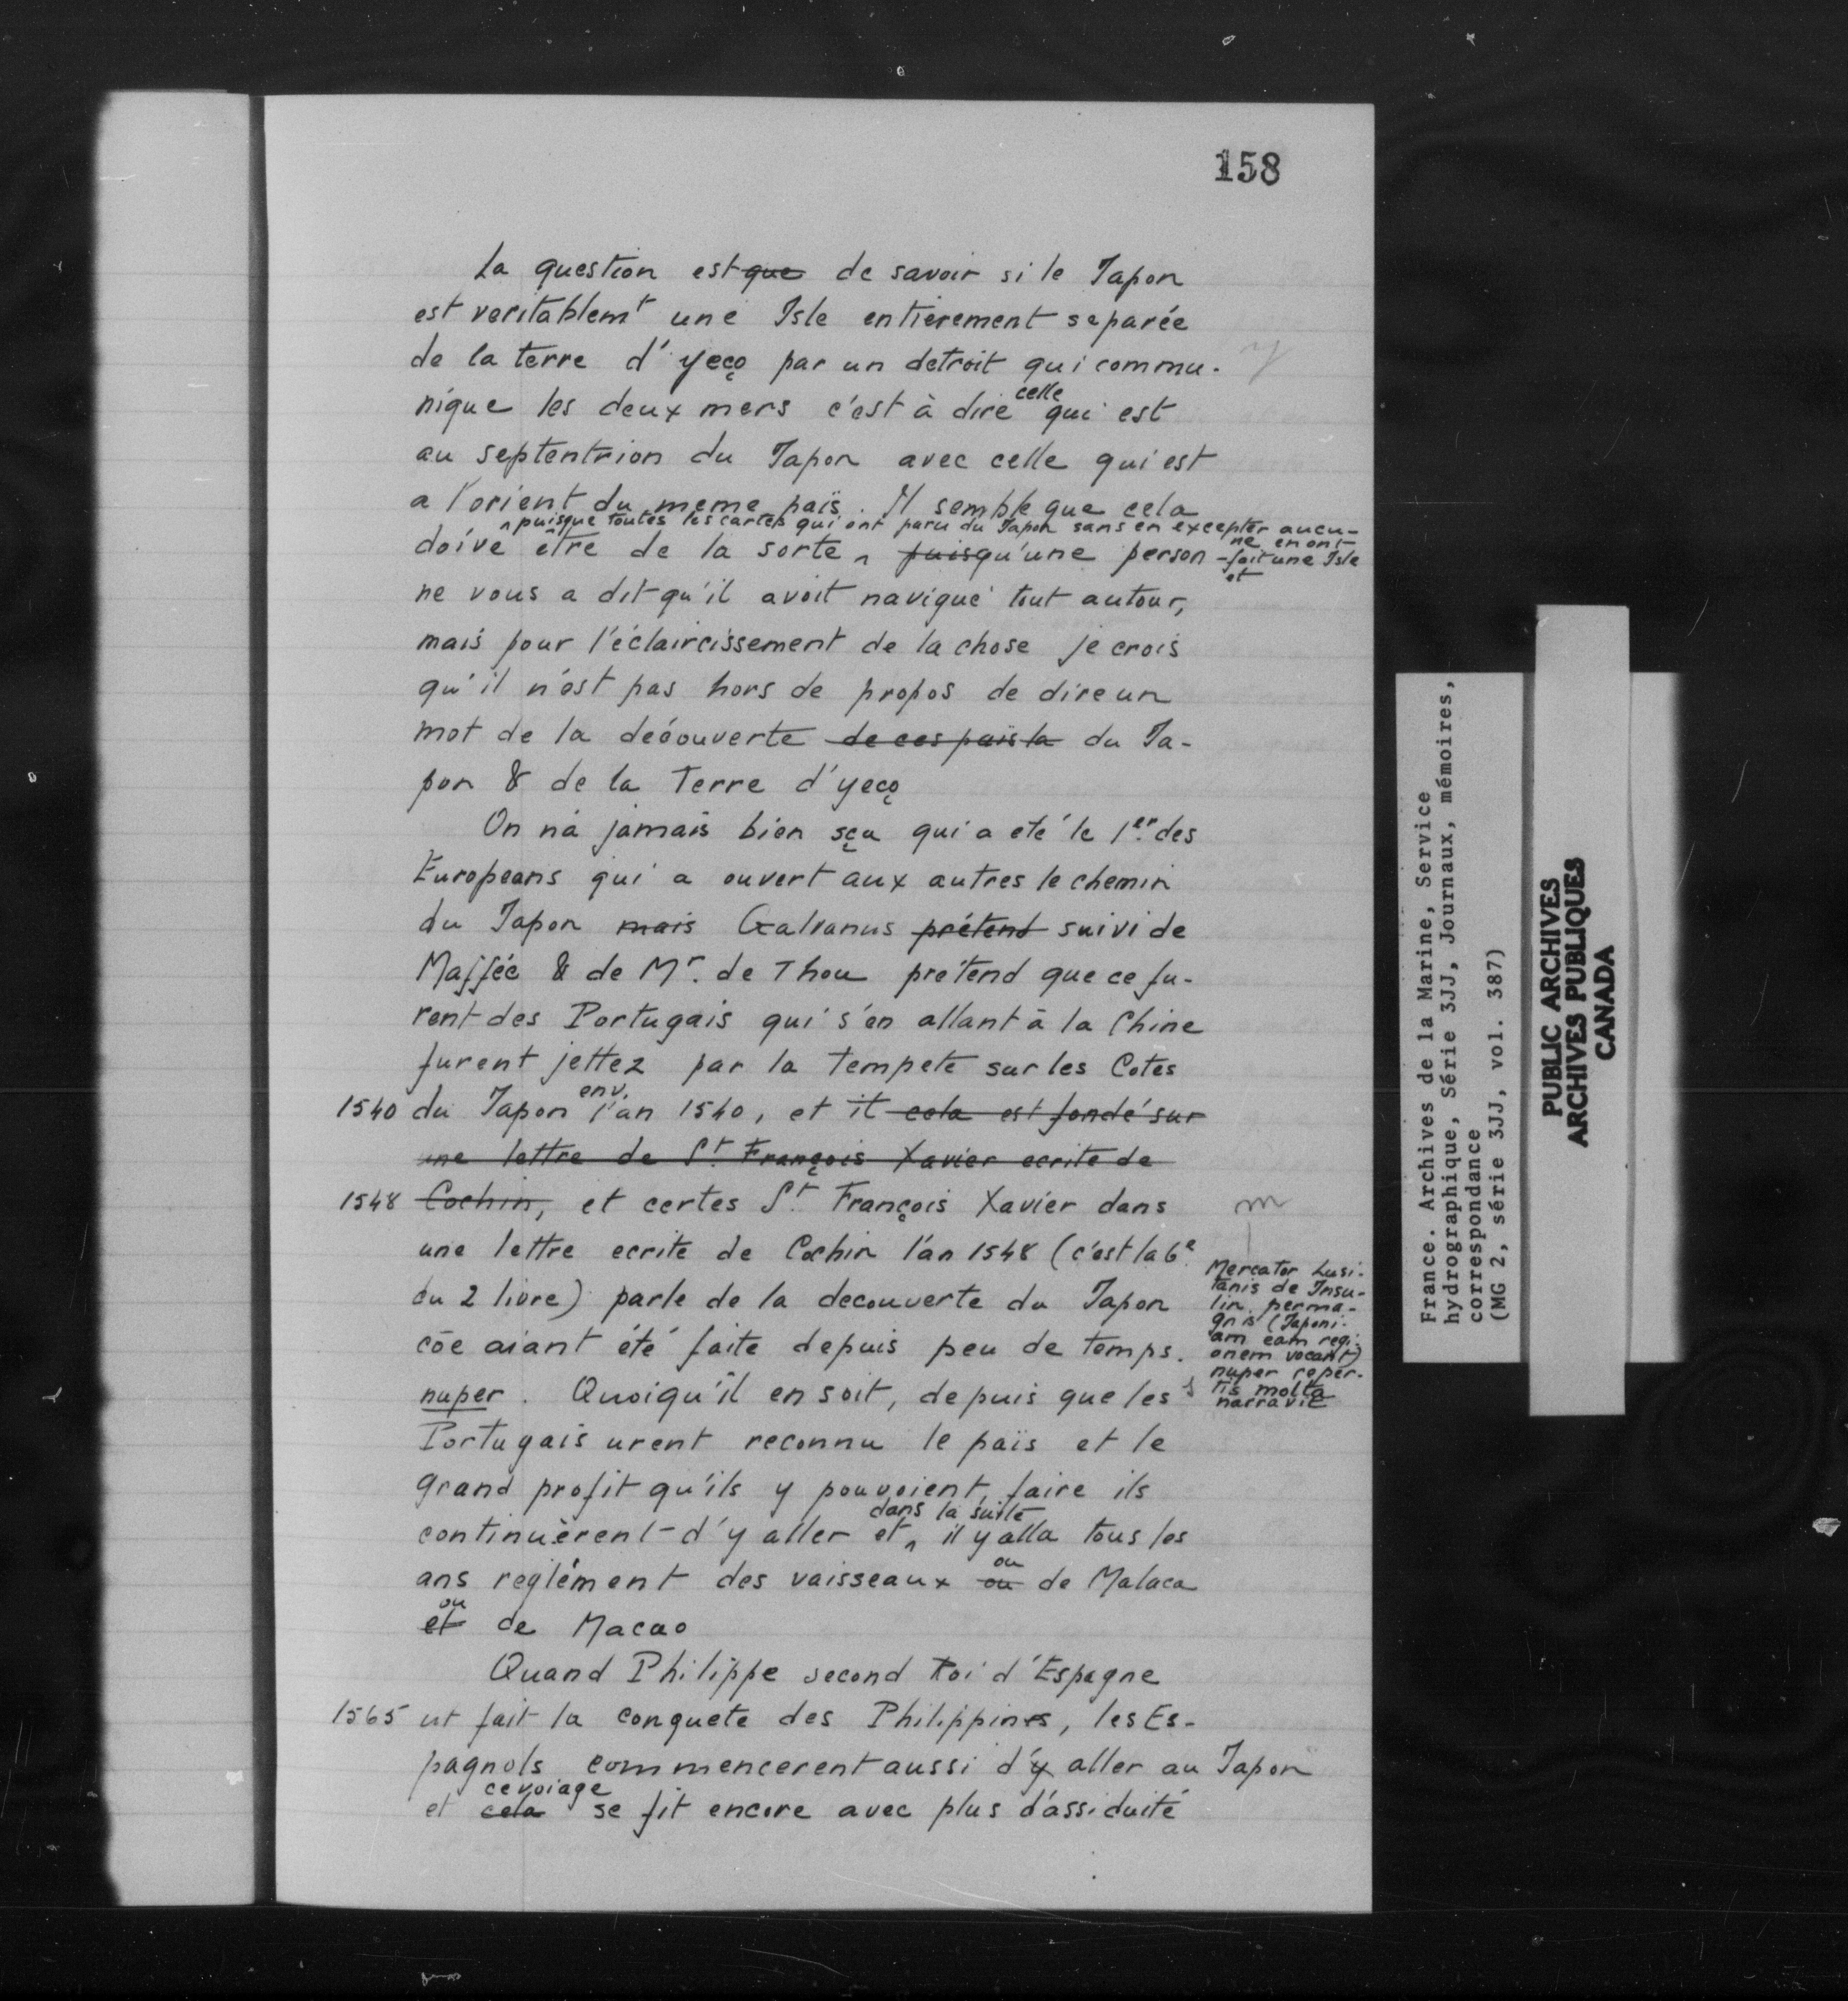 158
La question est que de savoir si le Japon
est veritablemt une Isle entierement separée
de la terre d'yeço par un detroit qui commu-
nique les deux mers c'est à dire celle qui est
au septentrion du Japon avec celle qui est
a l'orient du meme païs. Il semble que cela
^ puisque toutes les cartes qui ont paru du Japon sans en excepter aucu-
ne en ont
fait une Isle
et
doive être de la sorte ^ puisqu'une person-
ne vous a dit qu'il avoit navigué tout autour,
mais pour l'éclaircissement de la chose je crois
qu'il n'est pas hors de propos de dire un
mot de la déóuverte de ces païs la du Ja-
pon & de la Terre d'yeço
On n'a jamais bien sçu qui a eté le 1er. des
Europeans qui a ouvert aux autres le chemin
du Japon mais Galvanus prétend suivi de
Maffée & de Mr. de Thou prétend que ce fu-
rent des Portugais qui s'en allant à la Chine
furent jettez par la tempete sur les Cotes
env.
1540 du Japon l'an 1540, et il cela est fondé sur
une lettre de St. François Xavier ecrite de
1548 Cochin, et certes St. François Xavier dans
une lettre ecrite de Cochin l'an 1548 (c'est la 6e.
du 2 livre) parle de la decouverte du Japon
cõe aiant été faite depuis peu de temps.
nuper. Quoiqu'il en soit, depuis que les
m
Mercator Lusi-
tanis de Insu-
lin perma-
gnis (Japoni-
am eam regi-
onem vocant)
nuper reper-
tis molta
narravit
Portugais urent reconnu le païs et le
grand profit qu'ils y pouvoient faire ils
dans la suite
continuèrent d'y aller et ^ il y alla tous les
ou
ans reglément des vaisseaux ou de Malaca
ou
et de Macao
Quand Philippe second Roi d'Espagne
1565 ut fait la conquete des Philippines, les Es-
pagnols commencerent aussi d'y aller au Japon
ce voiage
et cela se fit encore avec plus d'assiduité
France. Archives de la Marine, Service
hydrographique, Série 3JJ, Journaux, mémoires,
correspondance
(MG 2, série 3JJ, vol. 387)
PUBLIC ARCHIVES
ARCHIVES PUBLIQUES
CANADA